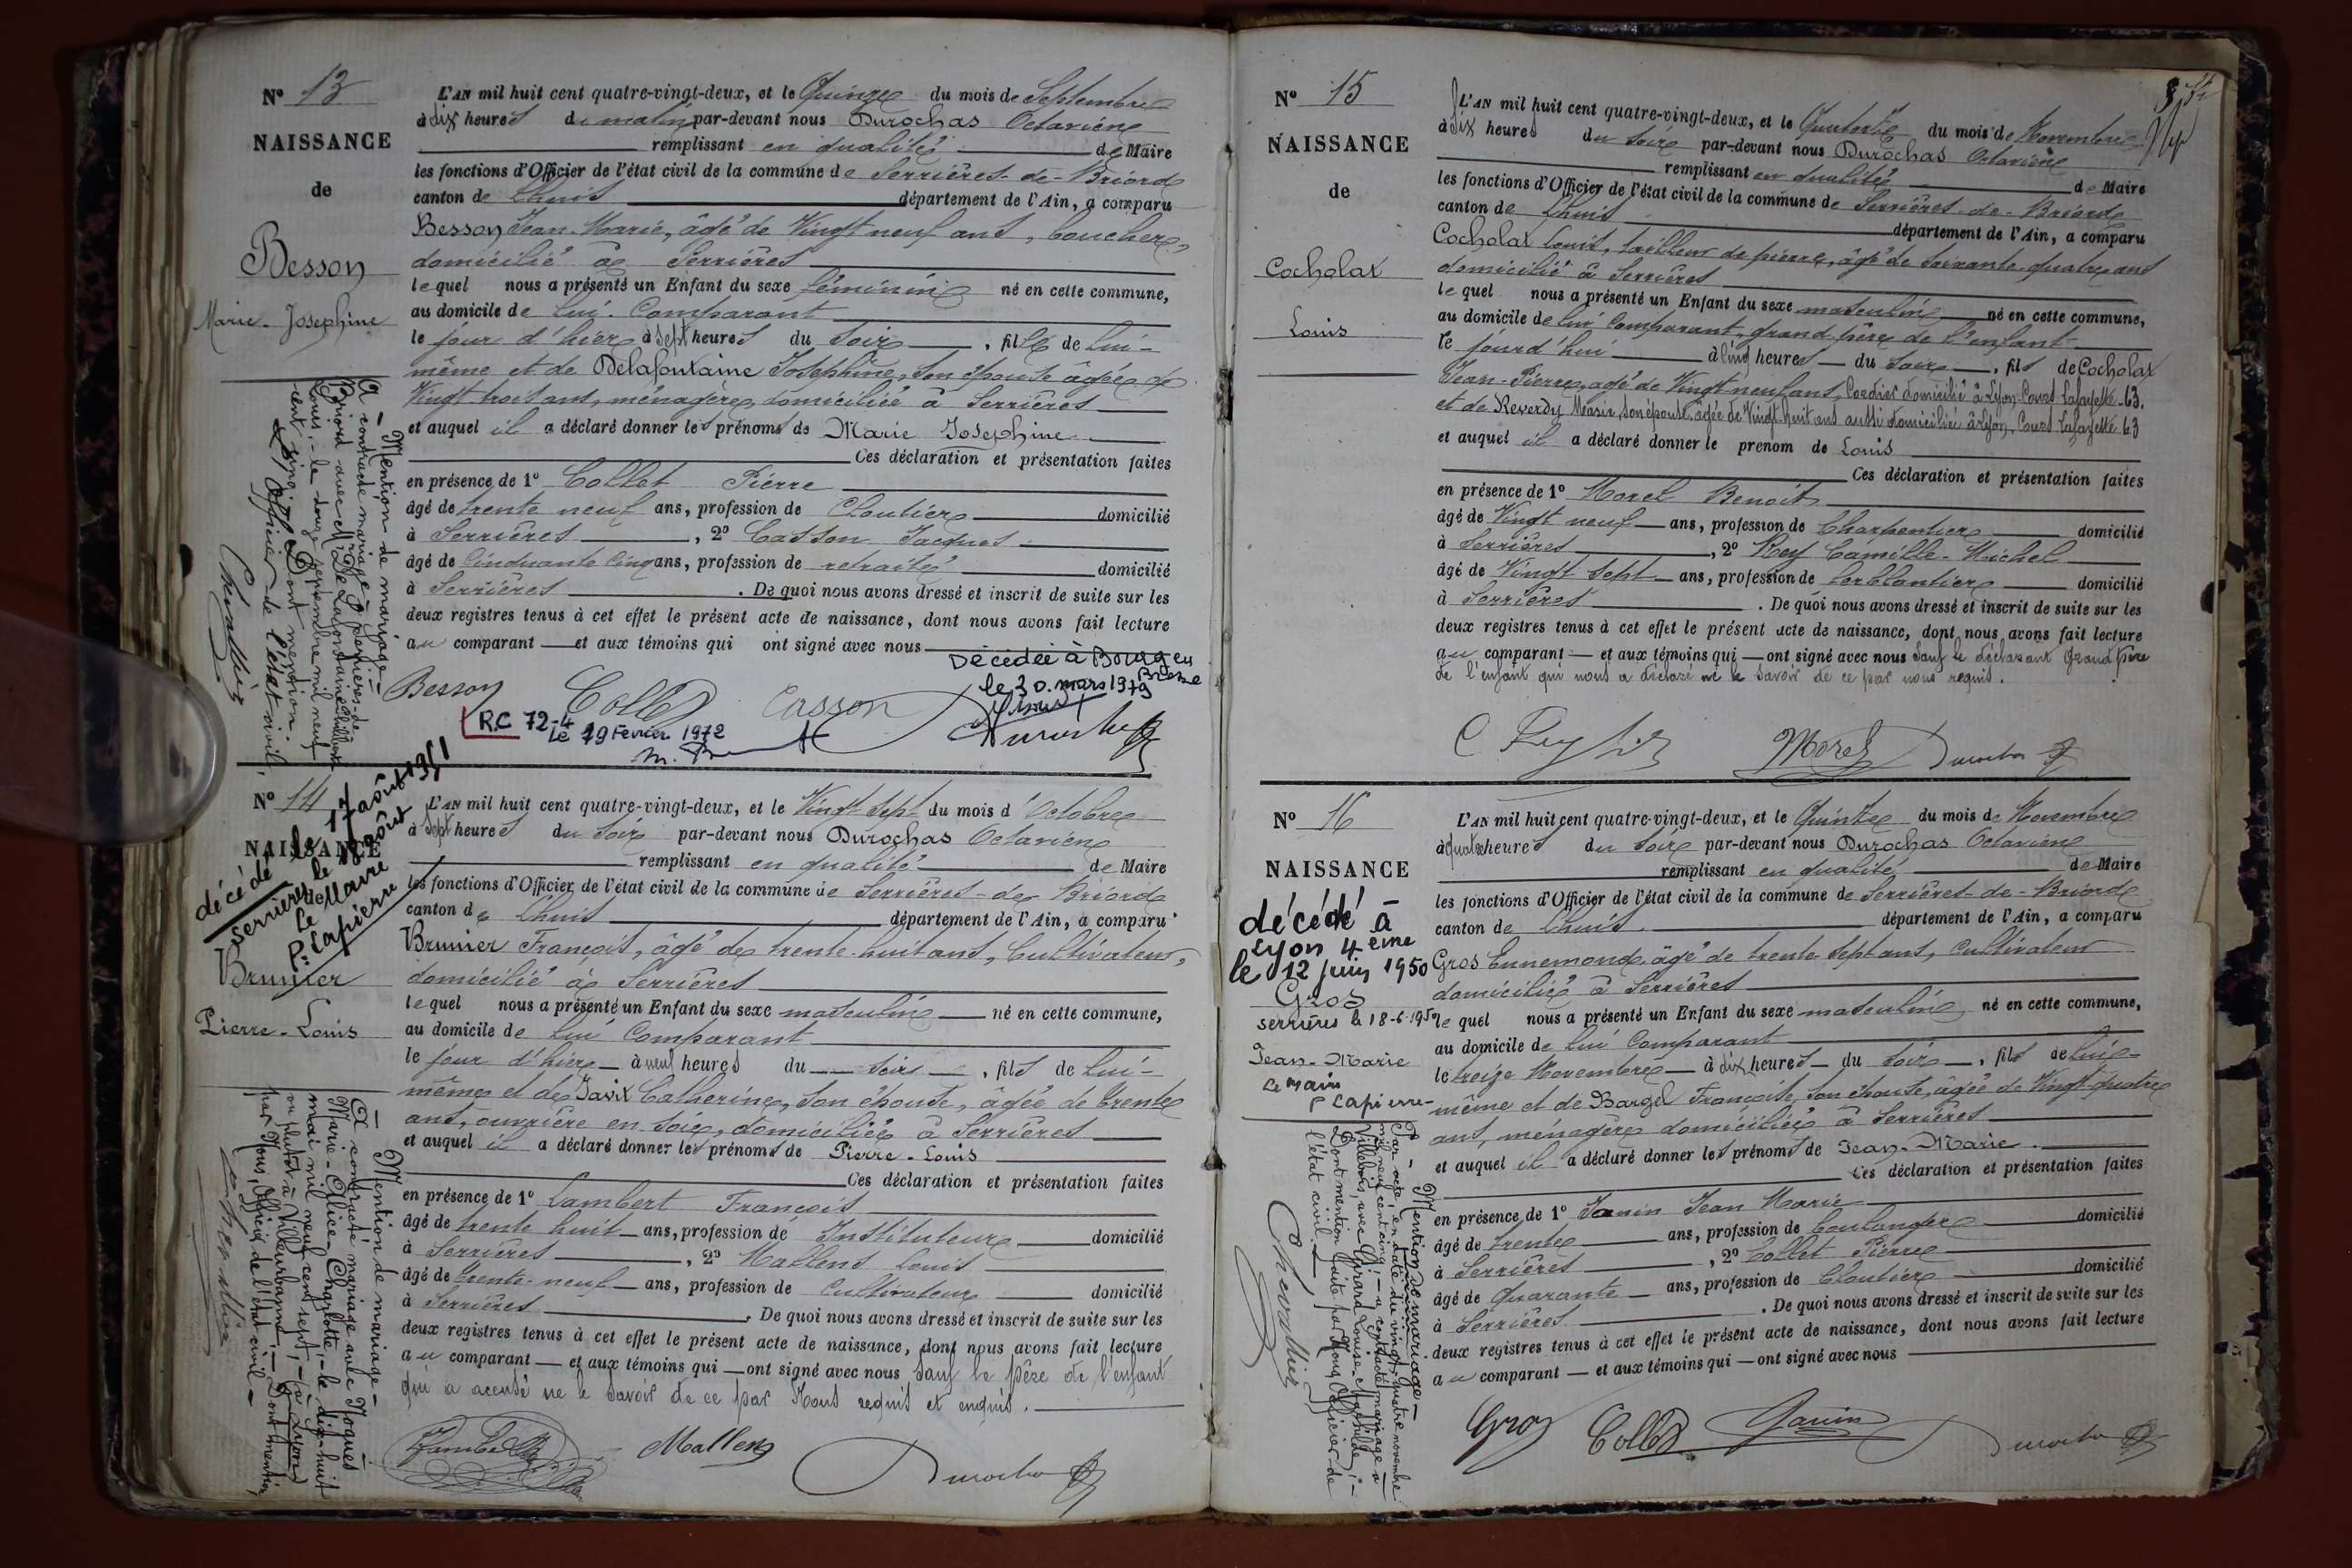 N° 13
NAISSANCE
de
Besson
Marie-Josephine
L'AN mil huit cent quatre-vingt-deux, et le Quinze du mois de Septembre
à dix heures du matin par-devant nous Durochas Octavien
remplissant en qualité de Maire
les fonctions d'Officier de l'état civil de la commune de Serrières-de-Briord
canton de Lhuis département de l'Ain, a comparu
Besson Jean-Marie, âgé de Vingt neuf ans, boucher,
domicilié à Serrières
lequel nous a présenté un Enfant du sexe féminin né en cette commune,
au domicile de lui Comparant
le jour d'hier à sept heures du soir, fille de lui-
même et de Delafontaine Josephine, son épouse âgée de
Vingt trois ans, ménagère, domiciliée à Serrières
et auquel il a déclaré donner les prénoms de Marie Josephine
Ces déclaration et présentation faites
en présence de 1° Collet Pierre
âgé de trente neuf ans, profession de Cloutier domicilié
à Serrières, 2° Casson Jacques
âgé de Cinquante Cinq ans, profession de retraité domicilié
à Serrières. De quoi nous avons dressé et inscrit de suite sur les
deux registres tenus à cet effet le présent acte de naissance, dont nous avons fait lecture
au comparant et aux témoins qui ont signé avec nous
Décédée à Bourg en
Bresse
le 30 mars 1979
Besson Collet Casson
R.C 72-4
Le 19 Février 1972
- Mention de mariage -
A contracté mariage à Serrières-de-
Briord avec M. Delafontaine
Louis, le douze septembre mil neuf
cent cinq. Dont mention.
L'Officier de l'état civil,
Chevallier
N° 14
NAISSANCE
de
décédé le 17 août 1951
Serrières le 18 août
Le Maire
P. Lapierre
Brunier
Pierre-Louis
L'AN mil huit cent quatre-vingt-deux, et le Vingt sept du mois d'Octobre
à sept heures du soir par-devant nous Durochas Octavien
remplissant en qualité de Maire
les fonctions d'Officier de l'état civil de la commune de Serrières-de-Briord
canton de Lhuis département de l'Ain, a comparu
Brunier François, âgé de trente-huit ans, Cultivateur,
domicilié à Serrières
lequel nous a présenté un Enfant du sexe masculin né en cette commune,
au domicile de lui Comparant
le jour d'hier à neuf heures du soir, fils de lui-
même et de Javit Catherine, son épouse, âgée de trente
ans, ouvrière en soie, domiciliée à Serrières
et auquel il a déclaré donner les prénoms de Pierre-Louis
Ces déclaration et présentation faites
en présence de 1° Lambert François
âgé de trente huit ans, profession de Instituteur domicilié
à Serrières, 2° Mallens Louis
âgé de trente-neuf ans, profession de Cultivateur domicilié
à Serrières. De quoi nous avons dressé et inscrit de suite sur les
deux registres tenus à cet effet le présent acte de naissance, dont nous avons fait lecture
au comparant et aux témoins qui ont signé avec nous sauf le père de l'enfant
qui a accusé ne le savoir de ce par Nous requis et enquis.
Mallens
- Mention de mariage -
A contracté mariage avec Noguès
Marie-Alice-Charlotte, le dix-huit
mai mil neuf cent sept, (à Lyon)
ou plutôt à Villeurbanne. Dont mention,
par Nous, Officier de l'état civil -
Chevallier
N° 15
NAISSANCE
de
Cocholat
Louis
L'AN mil huit cent quatre-vingt-deux, et le Quatorze du mois de Novembre
à six heures du soir par-devant nous Durochas Octavien
remplissant en qualité de Maire
les fonctions d'Officier de l'état civil de la commune de Serrières-de-Briord
canton de Lhuis département de l'Ain, a comparu
Cocholat Louis, tailleur de pierre, âgé de soixante-quatre ans
domicilié à Serrières
lequel nous a présenté un Enfant du sexe masculin né en cette commune,
au domicile de lui Comparant, grand-père de l'enfant
le jourd'hui à cinq heures du soir, fils de Cocholat
Jean-Pierre, âgé de Vingt neuf ans, Cordier domicilié à Lyon Cours Lafayette 63.
et de Reverdy Marie, son épouse, âgée de Vingt-huit ans aussi domiciliée à Lyon, Cours Lafayette 63
et auquel il a déclaré donner le prenom de Louis
Ces déclaration et présentation faites
en présence de 1° Morel Benoit
âgé de Vingt neuf ans, profession de Charpentier domicilié
à Serrières, 2° Rey Camille-Michel
âgé de Vingt sept ans, profession de ferblantier domicilié
à Serrières. De quoi nous avons dressé et inscrit de suite sur les
deux registres tenus à cet effet le présent acte de naissance, dont nous avons fait lecture
au comparant et aux témoins qui ont signé avec nous sauf le déclarant Grand Père
de l'enfant qui nous a déclaré ne le savoir de ce par nous requis.
C Rey Morel
N° 16
NAISSANCE
décédé à
Lyon 4eme
le 12 juin 1950
Gros
Serrières le 18-6-1950
Jean-Marie
Le Maire
P Lapierre
L'AN mil huit cent quatre-vingt-deux, et le Quinze du mois de Novembre
à quatre heures du soir par-devant nous Durochas Octavien
remplissant en qualité de Maire
les fonctions d'Officier de l'état civil de la commune de Serrières-de-Briord
canton de Lhuis département de l'Ain, a comparu
Gros Ennemond âgé de trente sept ans, Cultivateur
domicilié à Serrières
lequel nous a présenté un Enfant du sexe masculin né en cette commune,
au domicile de lui Comparant
le treize Novembre à dix heures du soir, fils de lui-
même et de Bargel Françoise, son épouse, âgée de Vingt-quatre
ans, ménagère domiciliée à Serrières
et auquel il a déclaré donner les prénoms de Jean-Marie.
Ces déclaration et présentation faites
en présence de 1° Janin Jean Marie
âgé de trente ans, profession de boulanger domicilié
à Serrières, 2° Collet Pierre
âgé de Quarante ans, profession de Cloutier domicilié
à Serrières. De quoi nous avons dressé et inscrit de suite sur les
deux registres tenus à cet effet le présent acte de naissance, dont nous avons fait lecture
au comparant et aux témoins qui ont signé avec nous
Gros Collet Janin
- Mention de mariage -
Par acte, en date du vingt-quatre novembre
mil neuf cent cinq, a contracté mariage à
Villebois, avec Girard Louise-Mathilde;
Dont mention faite par Nous Officier de
l'état civil.
Chevallier